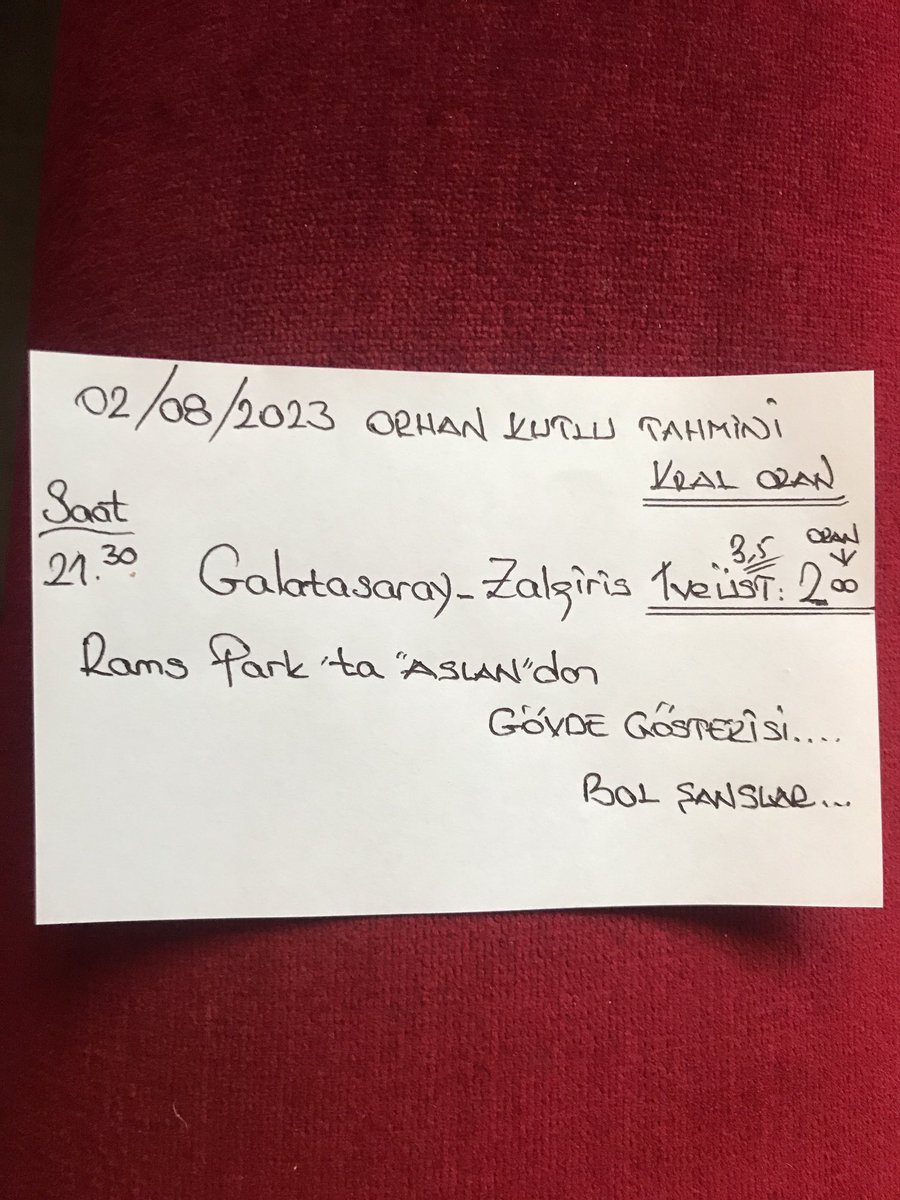 02/08/2023 ORHAN KUTLU TAHMİNİ
KRAL ORAN
Saat
21.30 Galatasaray - Zalgiris 1 ve 3,5 ÜST: 2.00
ORAN
Rams Park'ta "ASLAN"dan
GÖVDE GÖSTERİSİ....
BOL ŞANSLAR...